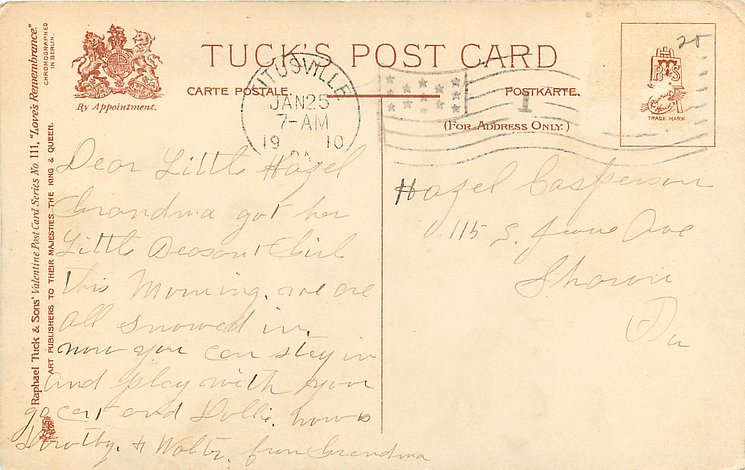 Raphael Tuck & Sons' Valentine Post Card Series No. 111, "Love's Remembrance."
ART PUBLISHERS TO THEIR MAJESTIES THE KING & QUEEN.
CHROMOGRAPHED
IN BERLIN.
By Appointment.
TUCK'S POST CARD
CARTE POSTALE.
POSTKARTE.
(FOR ADDRESS ONLY.)
TRADE MARK
25
TITUSVILLE
JAN 25
7-AM
1910
PA.
1
Dear Little Hazel
Grandma got her
Little Girl
this Morning. we are
all snowed in.
now you can stay in
and play with your
go cart and Dollie. how is
Dorothy. & Walter. from Grandma
Hazel Casperson
115 S. Ave
Sharon
Pa